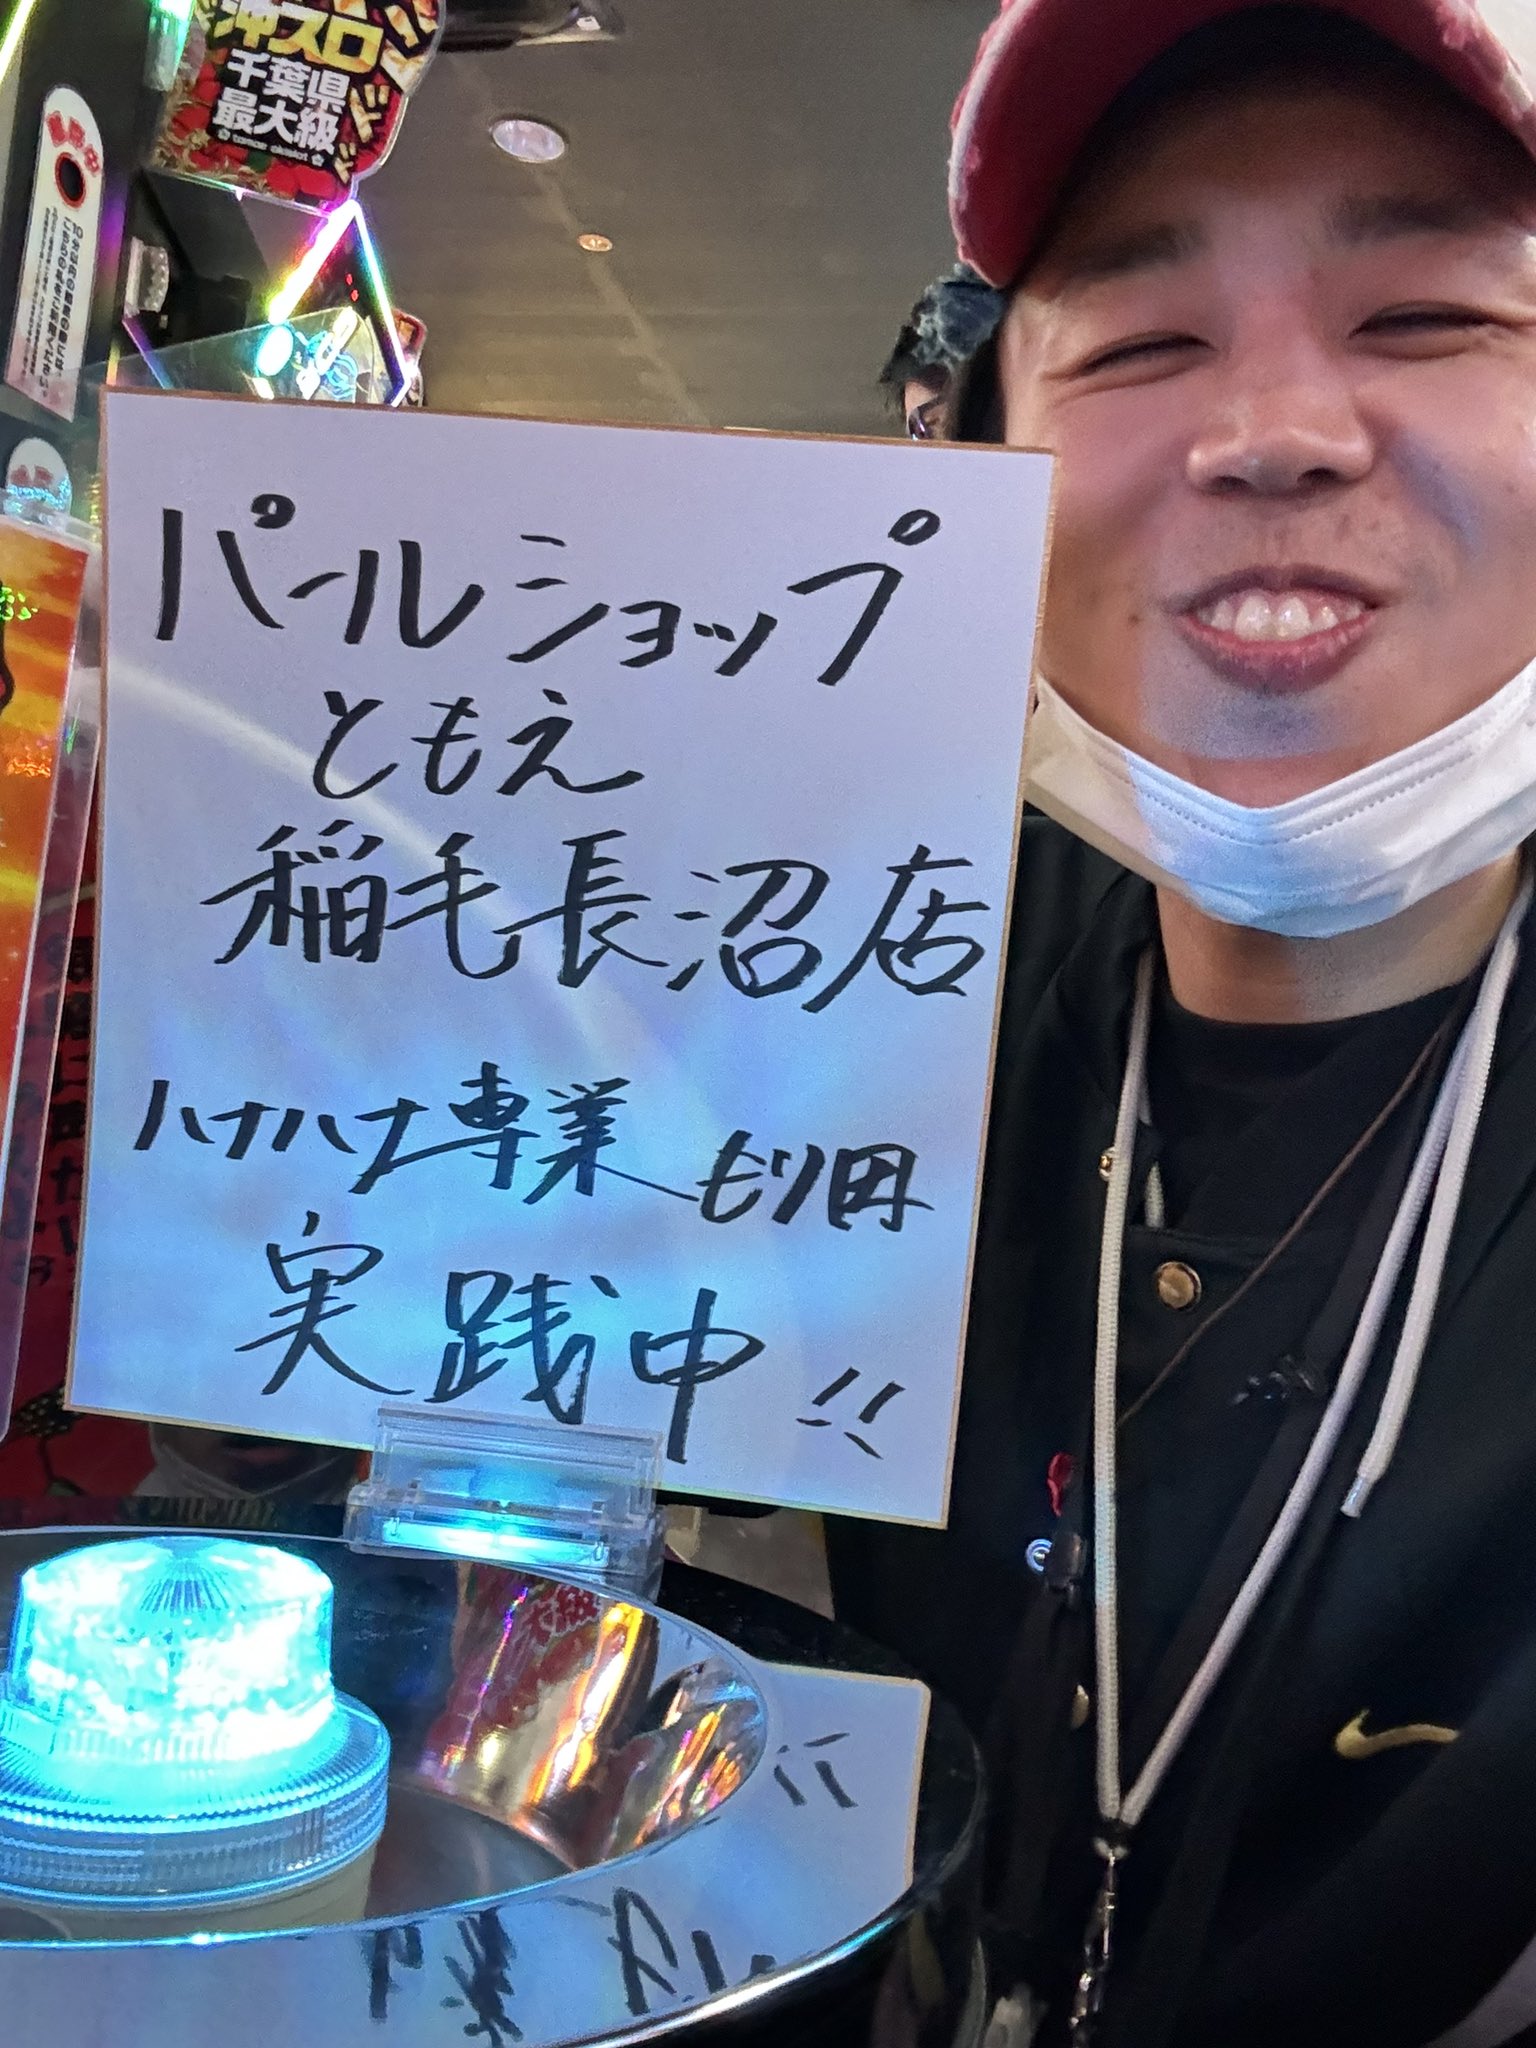 沖スロ
千葉県
最大級
パールショップ
ともえ
稲毛長沼店
ハナハナ専業 もり田
実践中!!